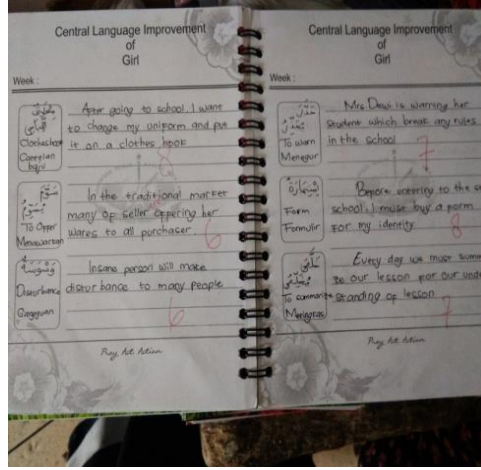 Central Language Improvement
of
Girl
Week :
Clotheshook
After going to school, I want
to change my uniform and put
it on a clothes hook
8
To Offer
Menawarkan
In the traditional market
many of seller offering her
wares to all purchaser
6
Disturbance
Gangguan
Insane person will make
disturbance to many people
6
Pray, Act Action
Central Language Improvement
of
Girl
Week :
To Warn
Menegur
Mrs. Dewi is warning her
student which break any rules
in the school
7
Form
Formulir
Before entering to the
school, I must buy a form
for my identity
8
Meringkas
Every day we must
our lesson for our
standing of lesson
7
Pray, Act Action